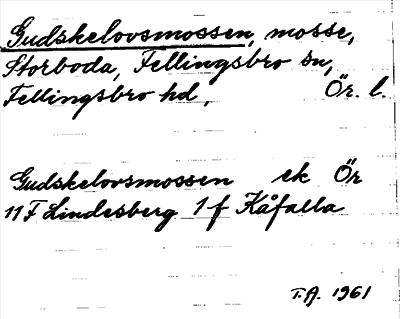 Gudskelovsmossen, mosse,
Storboda, Fellingsbro sn,
Fellingsbro hd, Ör. l.
Gudskelovsmossen ek Ör
11 F Lindesberg 1 f Kåfalla
T.A. 1961